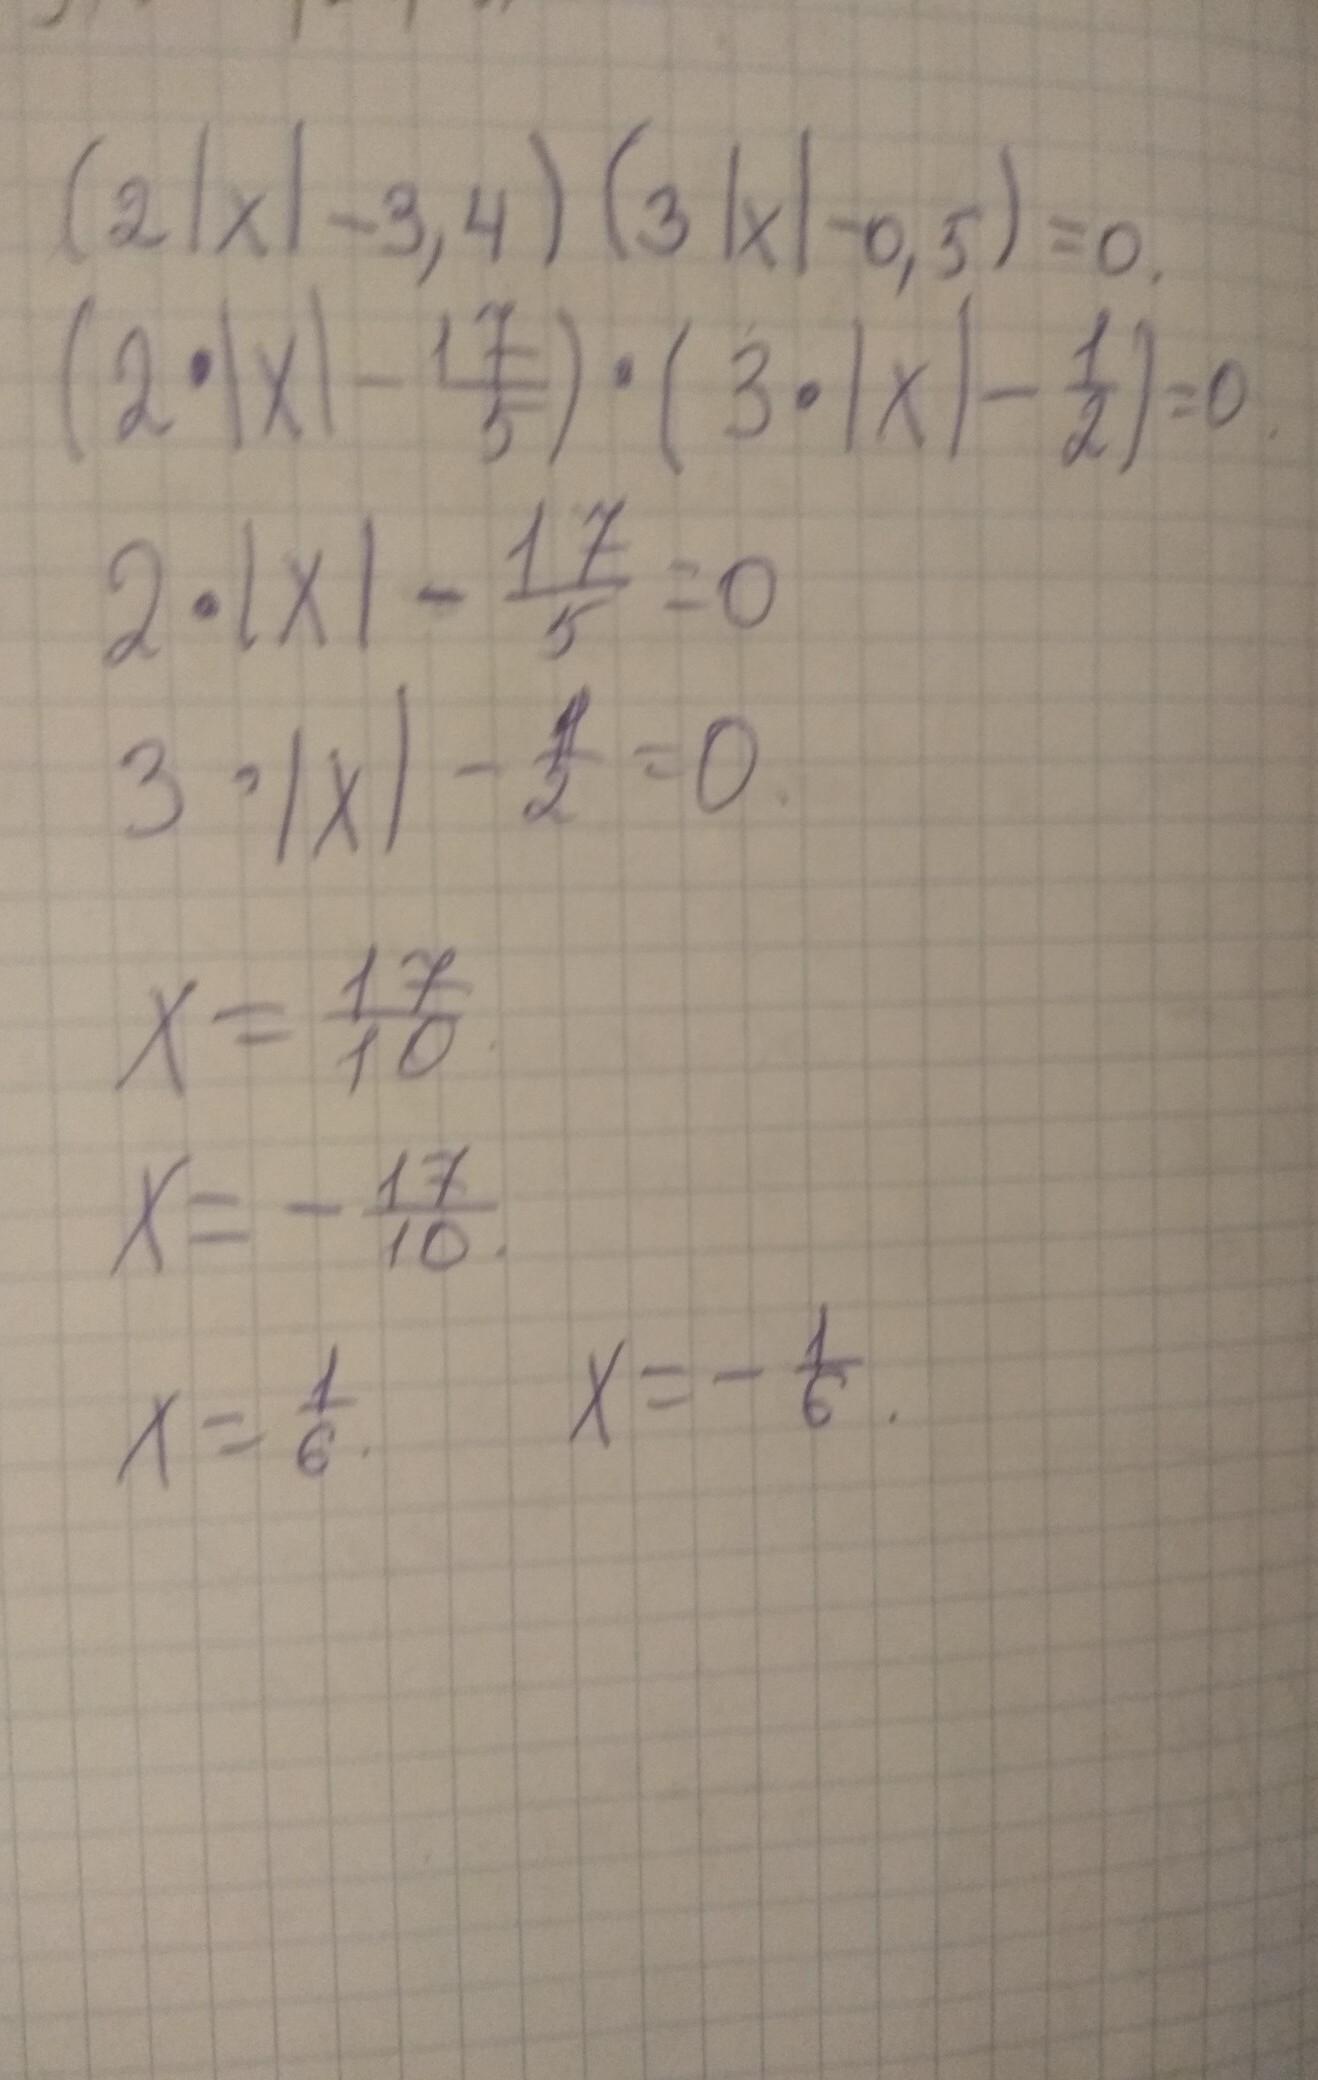 (2|x|-3,4)(3|x|-0,5)=0.
(2•|x|-17/5)•(3•|x|-1/2)=0.
2•|x|-17/5=0
3•|x|-1/2=0.
x=17/10.
x=-17/10.
x=1/6. x=-1/6.